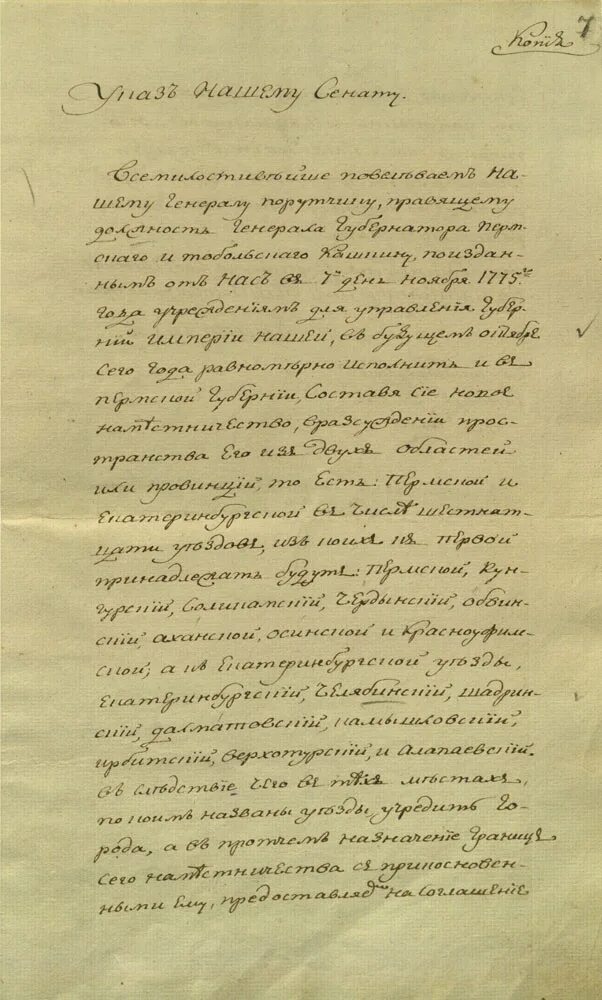 7
Копiя
Указъ нашему Сенату.
Всемилостивѣйше повелѣваемъ на-
шему Генералу порутчику, правящему
должность Генерала Губернатора перм-
скаго и тобольскаго Кашкину, поиздан-
нымъ отъ насъ въ 7й день ноября 1775го
года учрежденiямъ для управленiя Губер-
нiй империи нашей, въ будущемъ октябрѣ
сего года равномѣрно исполнить и въ
пермской Губернiи, Составя Сiе новое
намѣстничество, вразсужденiи прос-
транства Его изъ двухъ областей
или провинцiй, то Есть: Пермской и
Екатеринбургской въ числѣ шестнат-
цати уѣздовъ, изъ коихъ къ первой
принадлежать будутъ: пермской, Кун-
гурскiй, Соликамскiй, Чердынскiй, обвин-
скiй, аханской, осинской и Красноуфим-
ской; а къ Екатеринбургской уѣзды,
Екатеринбургскiй, Челябинскiй, шадрин-
скiй, далматовскiй, камышловскiй,
ирбитскiй, верхотурскiй, и Алапаевскiй.
въ слѣдствiе чего въ тѣхъ мѣстахъ,
по коимъ названы уѣзды, учредить го-
рода, а въ протчемъ назначенiе границъ
сего намѣстничества съ прикосновен-
ными ему, предоставляемъ на Соглашенiе